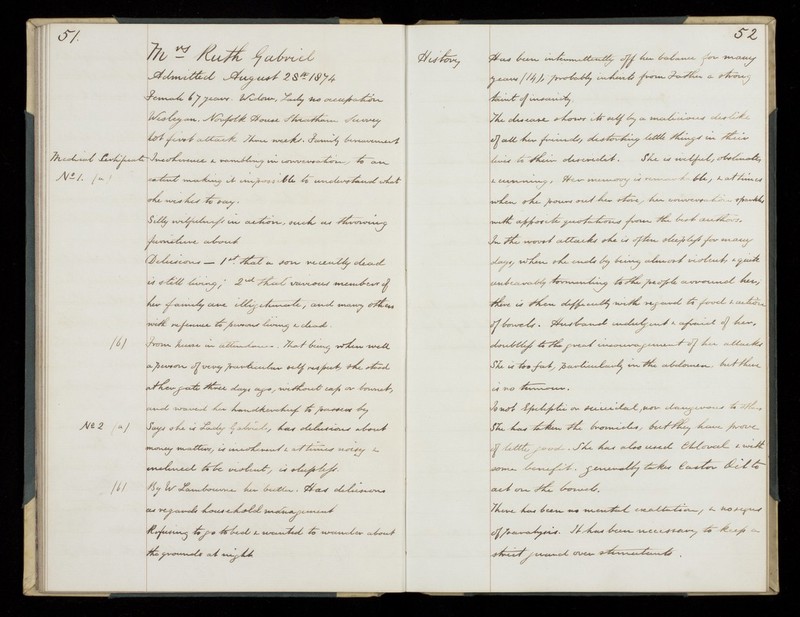 51.
Mrs Ruth Gabriel
Admitted August 28th 1874
Female 67 years. Widow, Lady no occupation
Wesleyan. Norfolk House Streatham Surrey
not first attack Three weeks. Family bereavement
Medical Certificate Incoherence & rambling in conversation, to an
No 1. (a) extent making it impossible to understand what
she wishes to say.
Silly wilfulness in action, such as throwing
furniture about
Delusions — 1st that a son recently dead
is still living; 2nd that various members of
her family are illegitimate, and many others
with reference to persons living & dead.
(b) From nurse in attendance. That being when well
a person of very particular self respect, she stood
at her gate three days ago, without cap or bonnet,
and waved her handkerchief to passers by
No 2 (a) Says she is Lady Gabriel, has delusions about
money matters, is incoherent & at times noisy &
inclined to be violent, is sleepless.
(b) By W Lambourne her butler. Has delusions
as regards household management
Refusing to go to bed & wanted to wander about
the grounds at night
52
History Has been intermittently off her balance for many
years (14), probably inherits from Father a strong
taint of insanity.
The disease shows itself by a malicious dislike
of all her friends, distorting little things in their
lives to their discredit. She is wilful, obstinate,
& cunning. Her memory is remarkable, & at times
when she pours out her store, her conversation sparkles
with apposite quotations from the best authors.
In the worst attacks she is often sleepless for many
days, when she ends by being almost violent, & quite
unbearably tormenting to the people arround her,
there is then difficulty with regard to food & action
of bowels. Husband indulgent & afraid of her,
doubtless to the great encouragement of her attacks
She is too fat, particularly in the abdomen but there
is no tumour.
Is not Epileptic or suicidal, nor dangerous to others
She has taken the bromides, but they have prove
of little good. She has also used Chloral & with
some benefit. generally takes Castor Oil to
act on the bowels.
There has been no mental exaltation, & no signs
of paralysis. It has been necessary to keep a
strict guard over stimulants.